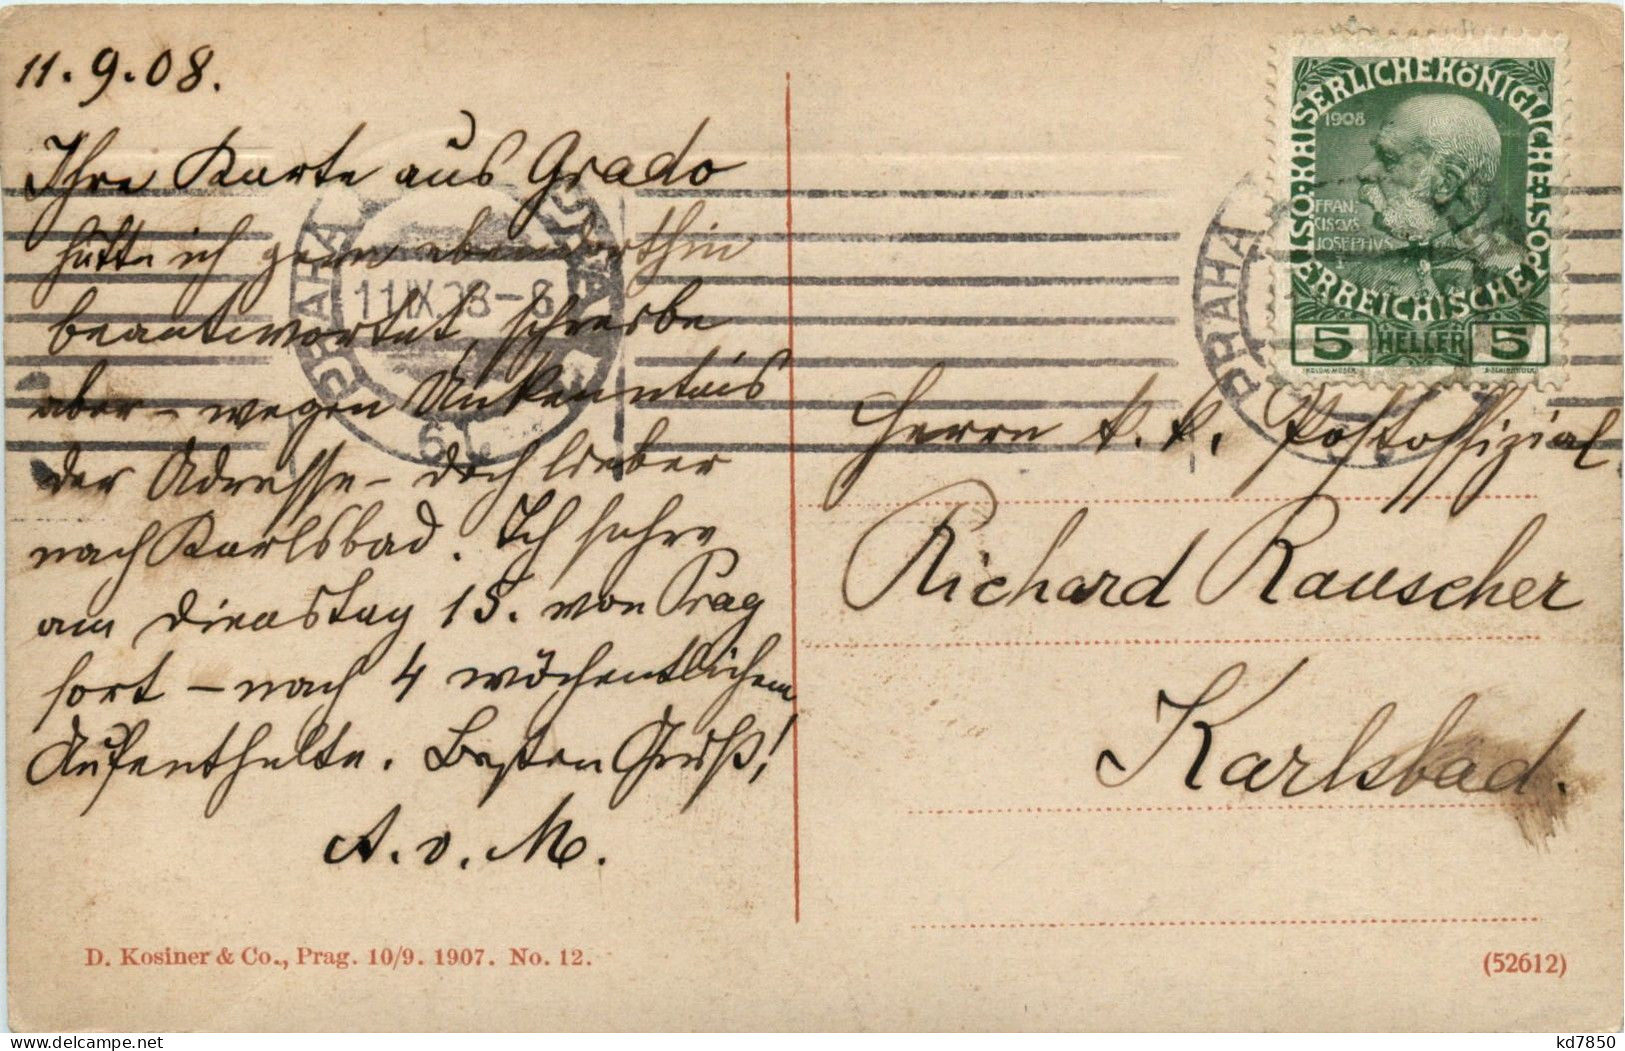 11.9.08.
Ihre Karte aus Grado
hätte ich gern ebendorthin
beantwortet, schreibe
aber – wegen Unkenntnis
der Adresse – doch lieber
nach Karlsbad. Ich fahre
am Dienstag 15. von Prag
fort – nach 4 wöchentlichem
Aufenthalte. Besten Gruß!
A. v. M.
D. Kosiner & Co., Prag. 10/9. 1907. No. 12.
PRAHA
11 IX 08-8
KAISERLICHE KÖNIGLICHE POST
ÖSTERREICHISCHE
1908
FRAN
CISCVS
IOSEPHVS
5 HELLER 5
PRAHA
Herrn k. k. Postoffizial
Richard Rauscher
Karlsbad.
(52612)
kd7850